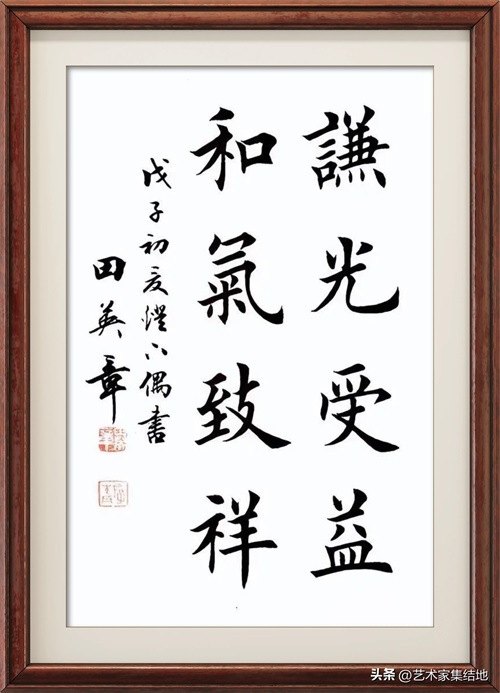 謙光受益
和氣致祥
戊子初夏燈下偶書
田英章
头条 @艺术家集结地